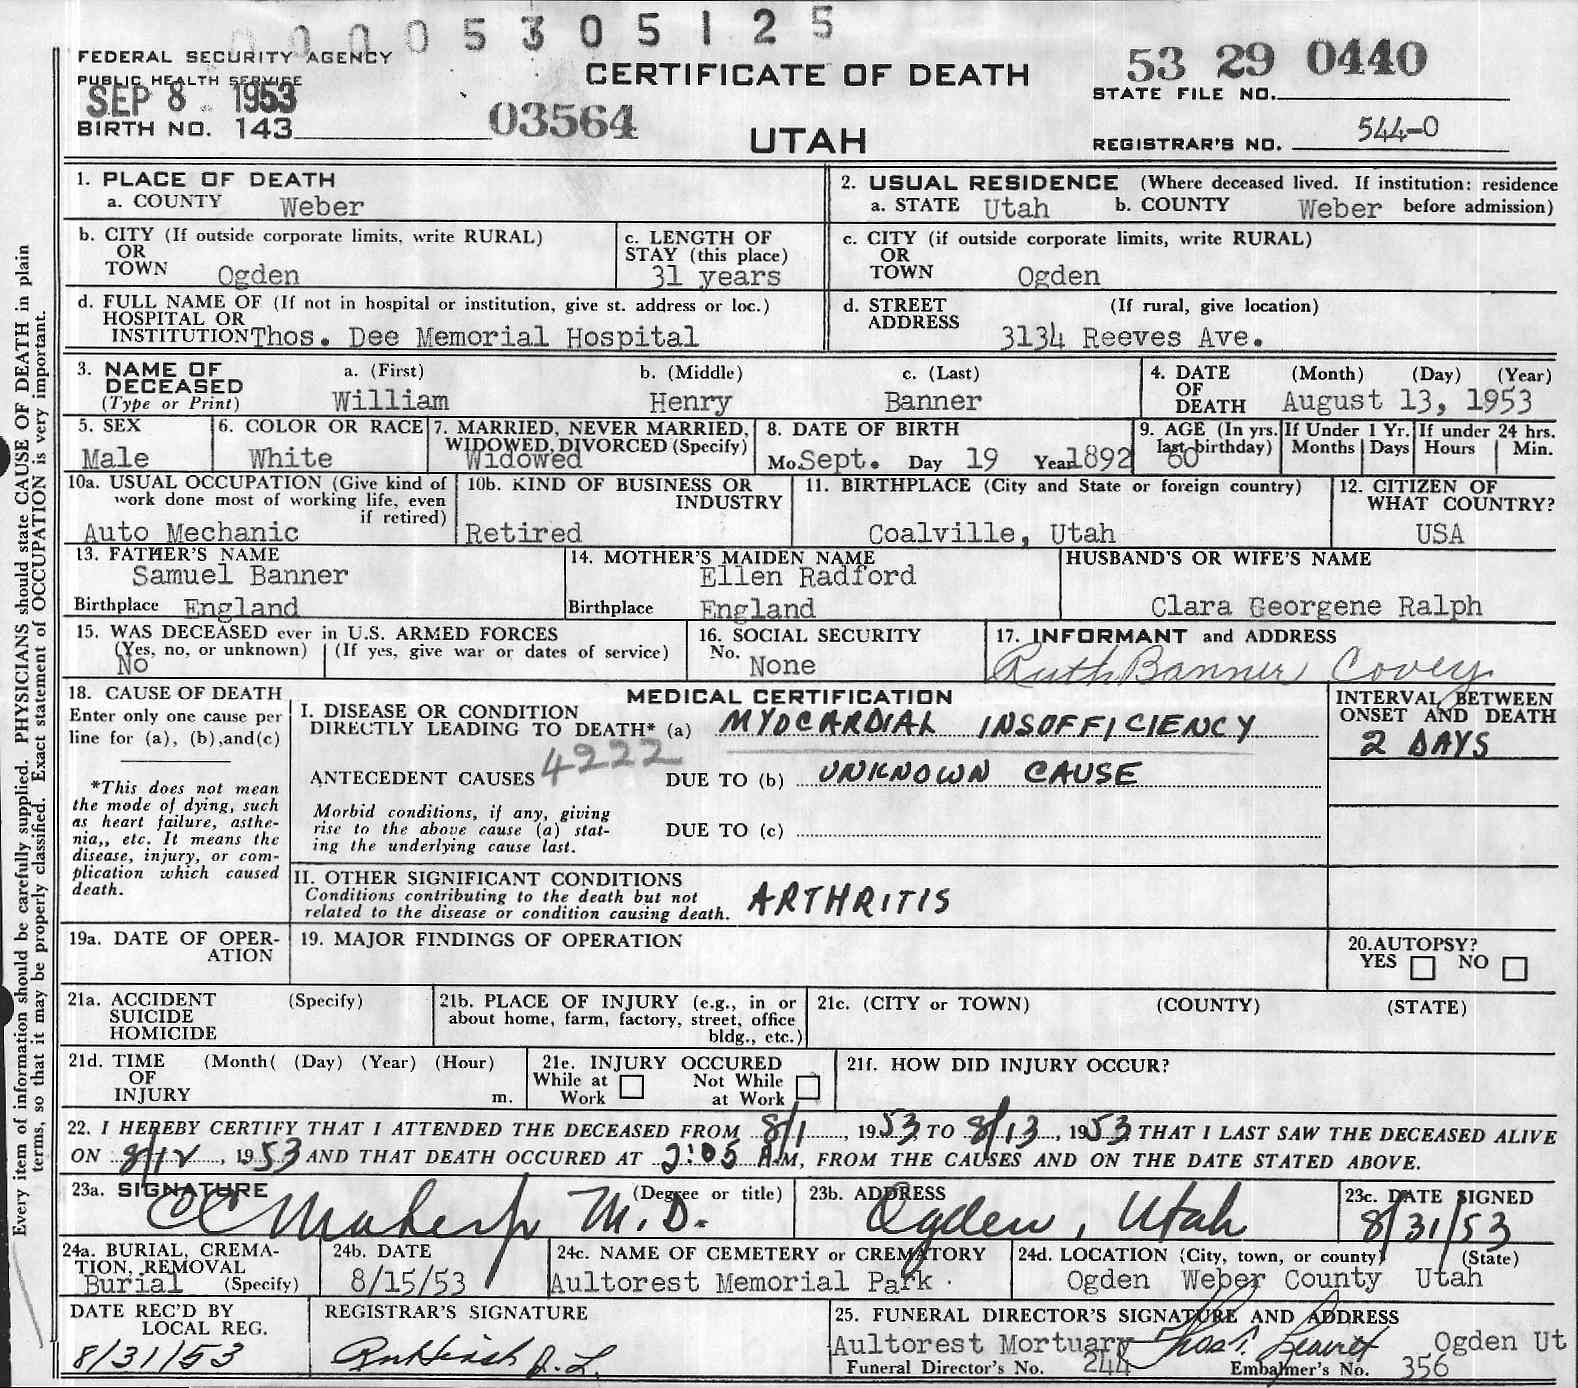 0 0 0 0 5 3 0 5 1 2 5
FEDERAL SECURITY AGENCY
PUBLIC HEALTH SERVICE
SEP 8 1953
BIRTH NO. 143
03564
CERTIFICATE OF DEATH
UTAH
53 29 0440
STATE FILE NO.
REGISTRAR'S NO. 544-0
Every item of information should be carefully supplied. PHYSICIANS should state CAUSE OF DEATH in plain
terms, so that it may be properly classified. Exact statement of OCCUPATION is very important.
1. PLACE OF DEATH
a. COUNTY Weber
2. USUAL RESIDENCE (Where deceased lived. If institution: residence
a. STATE Utah b. COUNTY Weber before admission)
b. CITY (If outside corporate limits, write RURAL)
OR
TOWN Ogden
c. LENGTH OF
STAY (this place)
31 years
c. CITY (if outside corporate limits, write RURAL)
OR
TOWN Ogden
d. FULL NAME OF (If not in hospital or institution, give st. address or loc.)
HOSPITAL OR
INSTITUTION Thos. Dee Memorial Hospital
d. STREET (If rural, give location)
ADDRESS 3134 Reeves Ave.
3. NAME OF a. (First) b. (Middle) c. (Last)
DECEASED
(Type or Print) William Henry Banner
4. DATE (Month) (Day) (Year)
OF
DEATH August 13, 1953
5. SEX
Male
6. COLOR OR RACE
White
7. MARRIED, NEVER MARRIED,
WIDOWED, DIVORCED (Specify)
Widowed
8. DATE OF BIRTH
Mo. Sept. Day 19 Year 1892
9. AGE (In yrs.
last birthday)
60
If Under 1 Yr.
Months Days
If under 24 hrs.
Hours Min.
10a. USUAL OCCUPATION (Give kind of
work done most of working life, even
if retired)
Auto Mechanic
10b. KIND OF BUSINESS OR
INDUSTRY
Retired
11. BIRTHPLACE (City and State or foreign country)
Coalville, Utah
12. CITIZEN OF
WHAT COUNTRY?
USA
13. FATHER'S NAME
Samuel Banner
Birthplace England
14. MOTHER'S MAIDEN NAME
Ellen Radford
Birthplace England
HUSBAND'S OR WIFE'S NAME
Clara Georgene Ralph
15. WAS DECEASED ever in U.S. ARMED FORCES
(Yes, no, or unknown) (If yes, give war or dates of service)
No
16. SOCIAL SECURITY
No. None
17. INFORMANT and ADDRESS
Ruth Banner Covey
18. CAUSE OF DEATH
Enter only one cause per
line for (a), (b),and(c)
*This does not mean
the mode of dying, such
as heart failure, asthe-
nia,, etc. It means the
disease, injury, or com-
plication which caused
death.
MEDICAL CERTIFICATION
I. DISEASE OR CONDITION
DIRECTLY LEADING TO DEATH* (a) MYOCARDIAL INSOFFICIENCY
4222
ANTECEDENT CAUSES DUE TO (b) UNKNOWN CAUSE
Morbid conditions, if any, giving
rise to the above cause (a) stat-
ing the underlying cause last.
DUE TO (c)
INTERVAL BETWEEN
ONSET AND DEATH
2 DAYS
II. OTHER SIGNIFICANT CONDITIONS
Conditions contributing to the death but not
related to the disease or condition causing death.
ARTHRITIS
19a. DATE OF OPER-
ATION
19. MAJOR FINDINGS OF OPERATION
20.AUTOPSY?
YES NO
21a. ACCIDENT (Specify)
SUICIDE
HOMICIDE
21b. PLACE OF INJURY (e.g., in or
about home, farm, factory, street, office
bldg., etc.)
21c. (CITY or TOWN) (COUNTY) (STATE)
21d. TIME (Month( (Day) (Year) (Hour)
OF
INJURY m.
21e. INJURY OCCURED
While at Not While
Work at Work
21f. HOW DID INJURY OCCUR?
22. I HEREBY CERTIFY THAT I ATTENDED THE DECEASED FROM 8/1, 1953 TO 8/13, 1953 THAT I LAST SAW THE DECEASED ALIVE
ON 8/12, 1953 AND THAT DEATH OCCURED AT 2:05 A.M, FROM THE CAUSES AND ON THE DATE STATED ABOVE.
23a. SIGNATURE (Degree or title)
M.D.
23b. ADDRESS
Ogden, Utah
23c. DATE SIGNED
8/31/53
24a. BURIAL, CREMA-
TION, REMOVAL
Burial (Specify)
24b. DATE
8/15/53
24c. NAME OF CEMETERY or CREMATORY
Aultorest Memorial Park
24d. LOCATION (City, town, or county) (State)
Ogden Weber County Utah
DATE REC'D BY
LOCAL REG.
8/31/53
REGISTRAR'S SIGNATURE
25. FUNERAL DIRECTOR'S SIGNATURE AND ADDRESS
Aultorest Mortuary Ogden Ut
Funeral Director's No. 244 Embalmer's No. 356